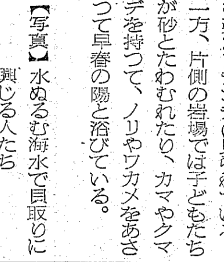 一方、片側の岩場では子どもたち
が砂とたわむれたり、カマやクマ
デを持つて、ノリやワカメをあさ
つて早春の陽と浴びている。
【写真】水ぬるむ海水で貝取りに
興じる人たち